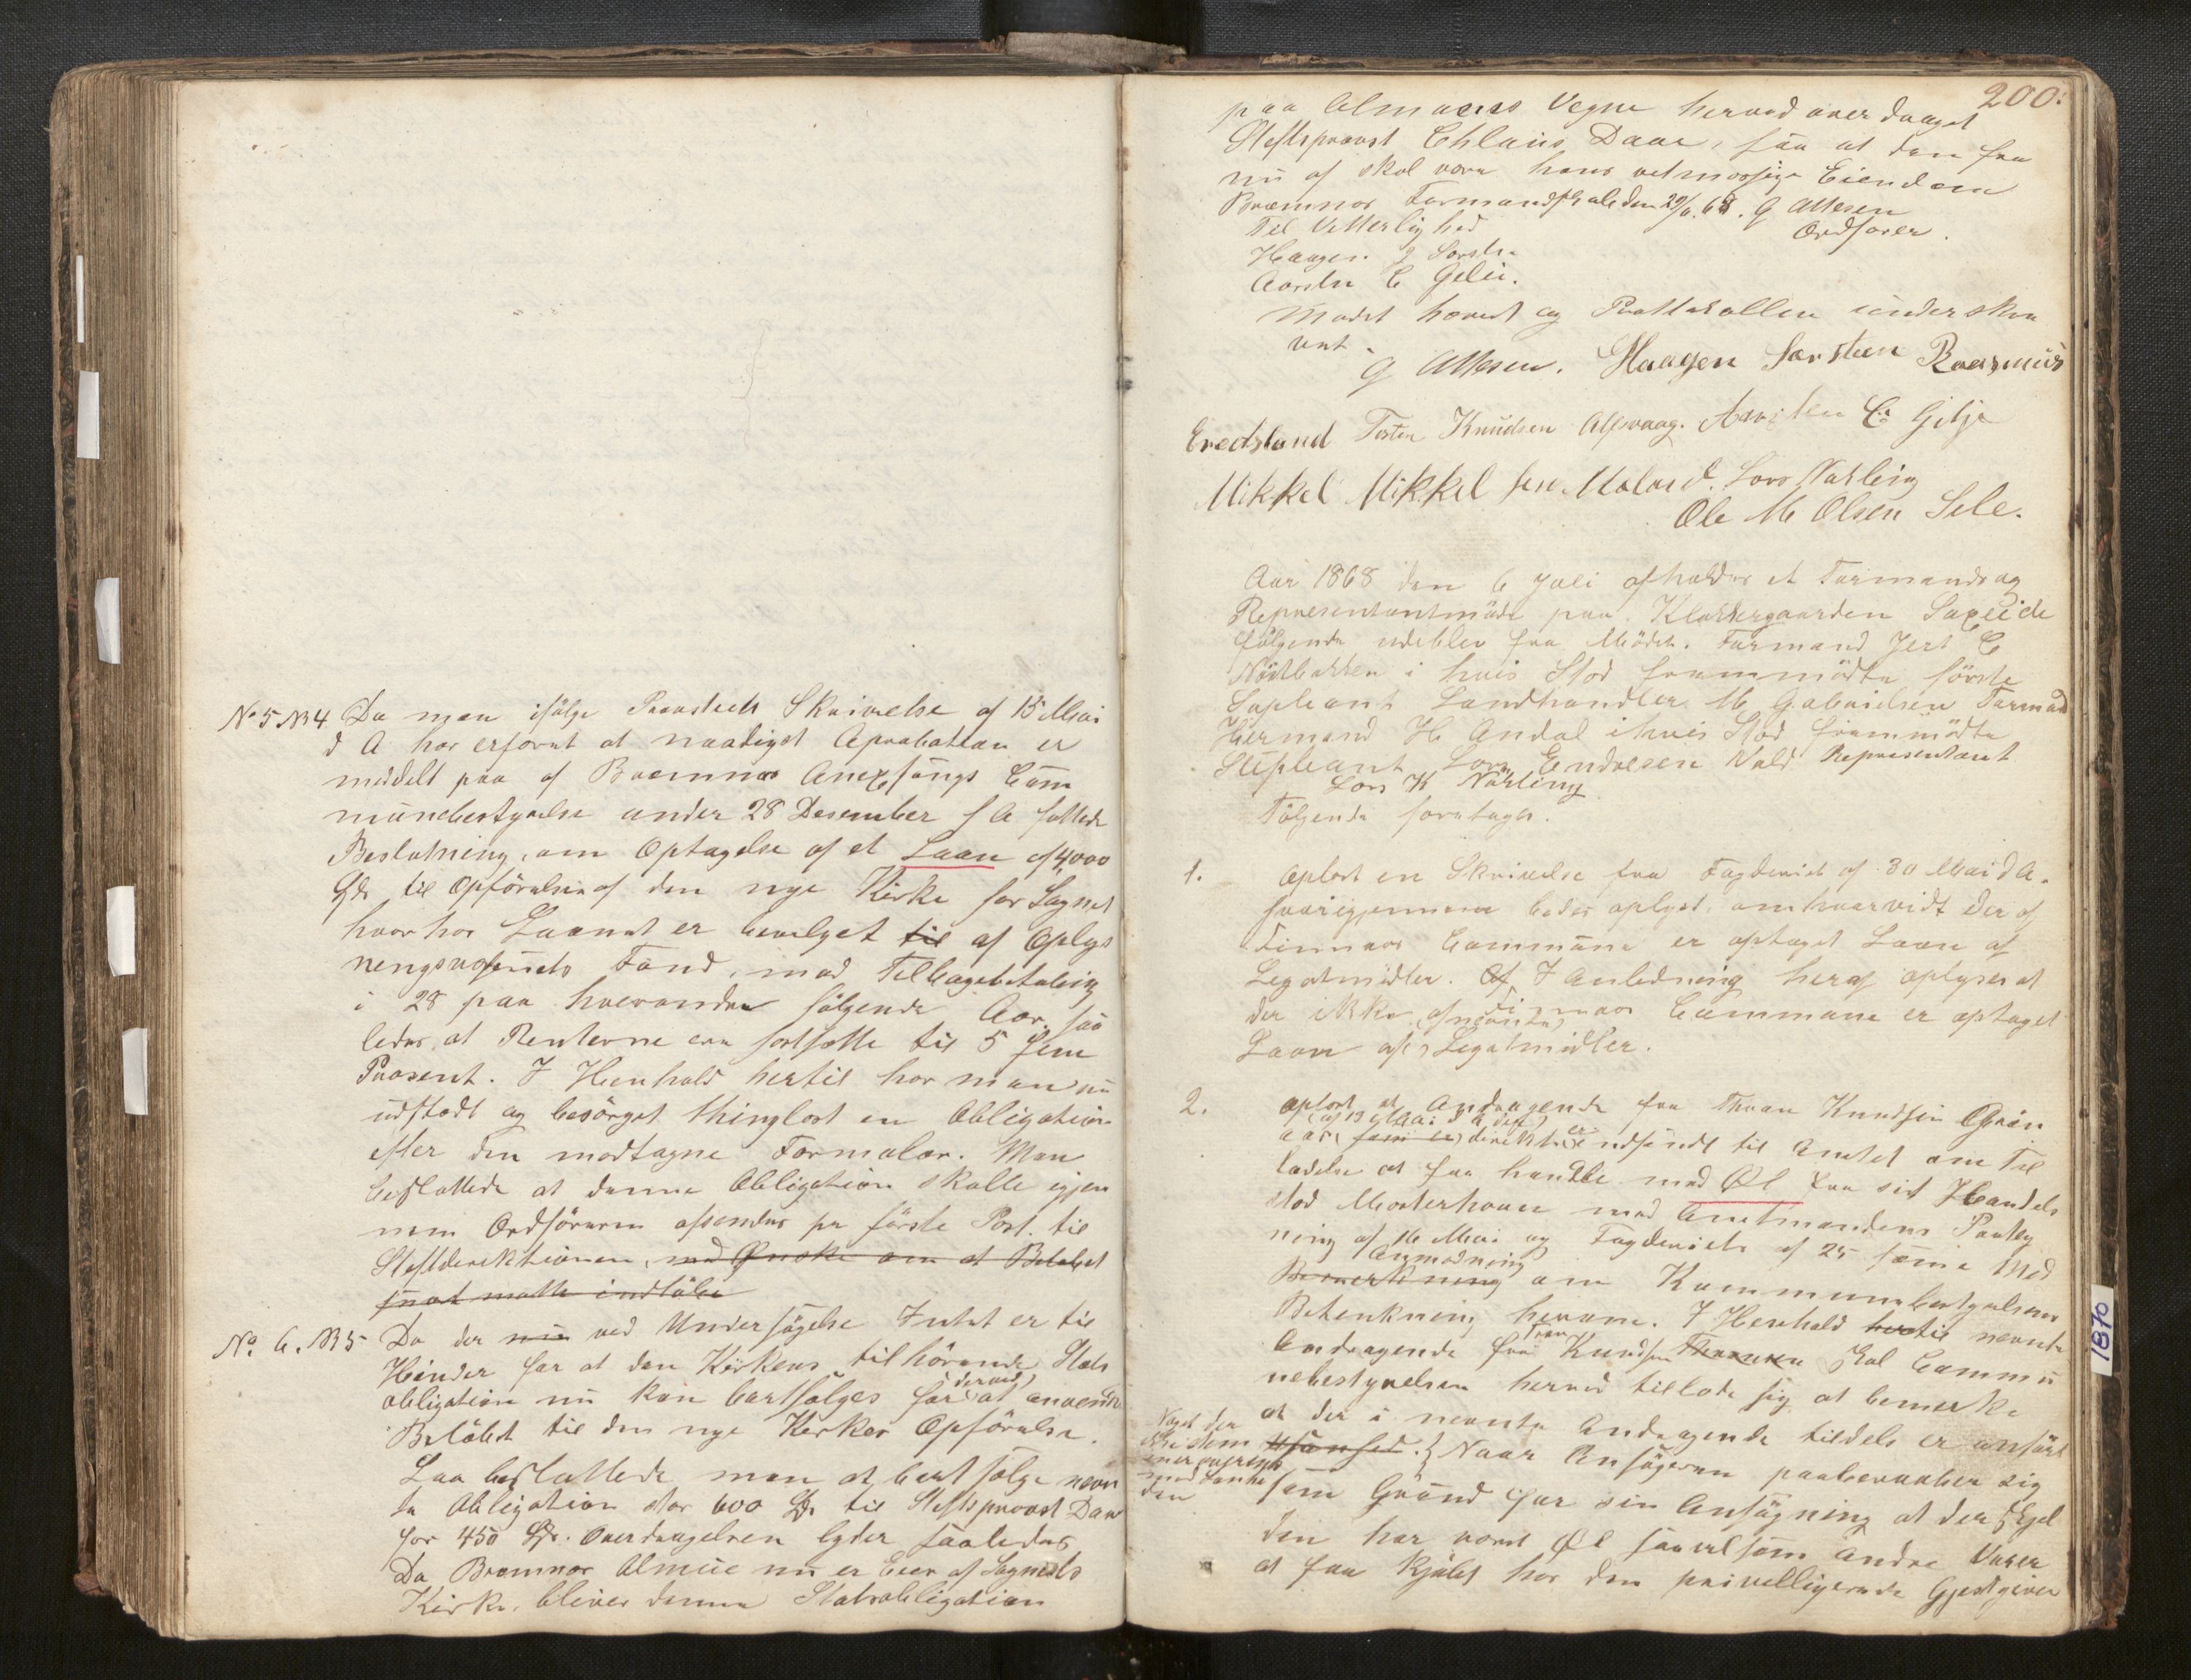 No 5 No 4 Da man ifölge Provstiets Skrivelse af 15 Mai
d A har erfaret at naadigst Aprobation er
meddelt paa af Bremnes Anexsongs Com
munebestyrelse under 28 Desember f A fattede
Beslutning, om Optagelse af et Laan af 4000
Spd til Opförelsen af den nye Kirke for Sognet
hvorhos Laanet er bevelget til af Oplys
nengsvesenets Fond, mod Tilbagebetaling
i 28 paa hverandre fölgende Aar, saa
ledes, at Renterne ere fortsatte til 5 fem
Prosent. I Henhold hertil har man nu
udstedt og besörget thinglest en Obligation
efter den modtagne Formular. Man
besluttede at denne Obligation skulle igjen
nem Ordföreren afsendes pr förste Post til
Stiftdirektionen, med Ønske om at Belöbet
snart matte indlöbe
No 6. No 5 Da der nu ved Undersögelse Intet er til
Hinder for at den Kirkens tilhörende Stats
obligation nu kan bortsælges for derved at anvende
Belöbet til den nye Kirkes Opförelse.
Saa besluttede man at bortsælge nevn
te Obligation stor 600 Spd til Stiftsprovst Daae
for 450 Spd. Overdragelsen lyder saaledes
Da Bremnes Almue nu er Eier af Sognets
Kirke, bliver denne Statsobligation
200.
paa Almuens Vegne herved overdraget
Stiftsprovst Chlaus Daae, saa at den fra
nu af skal være hans retmæssige Eiendom
Bremnes Formandskab den 29/6. 68. G Attesen
Til Vitterlighed Ordförer.
Haagen J Sorsten
Aarsten C Gilie.
Mödet hævet og Protokollen underskre
vet.
G Attesen. Haagen Sorsteen Raasmus
Eredsland Tosten Knudsen Alfsvaag. Aarsten C. Gilje
Mikkel Mikkelsen Meland. Lars Nakling
Ole M Olsen Sele.
Aar 1868 den 6 Juli afholdes et Formands og
Representantmöde paa Klokkergaarden Söreide
fölgende udeblev fra Mödet. Formand Jert C
Nödtbakken i hvis Sted fremmödte förste
Supleant Landhandler M Gabrielsen Formand
Hiermand H Andal ihvis Sted fremmödte
Supleant Lars Endresen Vald Representant
Lars K Nökling
Fölgende foretages.
1. Oplest en Skrivelse fra Fogderiet af 30 Mai d A.
hvorigjennem bedes oplyst, omhvorvidt der af
Finnaas Commune er optaget Laan af
Legatmidler. Af I Anledning heraf oplyses at
der ikke af Finnaas Commune er optaget
Laan af (nevnte) Legatmidler.
2. oplest et Andragende fra Thran Knudsen Grön
aas (af 19 Mai d A dist) som er direkte er indsendt til Amtet om Til
ladelse at faa handle med Øl fra sit Handels
sted Mosterhavn med Amtmandens Paateg
ning af 16 Mai og Fogderiets af 25 samme Med
Bemerkning Anmodning om Kommunebestyrelsens
Betenkning herom. I Henhold hertil nevnte
Andragende fra Tran Knudsen Thranen Skal Commu
nebestyrelsen herved tillade sig at bemerke
at der i nevnte Andragende tildels er anfört
Noget der ikke stem overens med Sanheden Usanhed. Naar Ansögeren paaberaaber sig
som Grund for sin Ansögning at der Sjel
den har været Øl saavelsom Andre Varer
at faa kjöbt hos den privelligerede Gjestgiver
1870